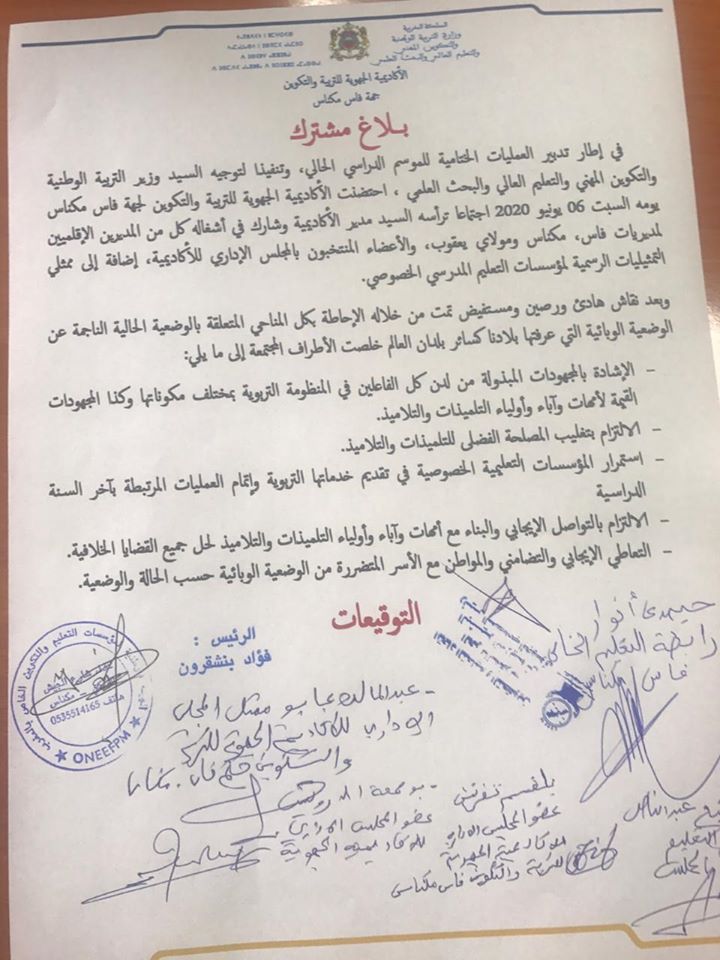 المملكة المغربية
وزارة التربية الوطنية
والتكوين المهني
والتعليم العالي والبحث العلمي
الأكاديمية الجهوية للتربية والتكوين
جهة فاس مكناس
بلاغ مشترك
في إطار تدبير العمليات الختامية للموسم الدراسي الحالي، وتنفيذا لتوجيه السيد وزير التربية الوطنية
والتكوين المهني والتعليم العالي والبحث العلمي ، احتضنت الأكاديمية الجهوية للتربية والتكوين لجهة فاس مكناس
يومه السبت 06 يونيو 2020 اجتماعا ترأسه السيد مدير الأكاديمية وشارك في أشغاله كل من المديرين الإقليميين
لمديريات فاس، مكناس ومولاي يعقوب، والأعضاء المنتخبون بالمجلس الإداري للأكاديمية، إضافة إلى ممثلي
التمثيليات الرسمية لمؤسسات التعليم المدرسي الخصوصي.
وبعد نقاش هادئ ورصين ومستفيض تمت من خلاله الإحاطة بكل المناحي المتعلقة بالوضعية الحالية الناجمة عن
الوضعية الوبائية التي عرفتها بلادنا كسائر بلدان العالم خلصت الأطراف المجتمعة إلى ما يلي:
- الإشادة بالمجهودات المبذولة من لدن كل الفاعلين في المنظومة التربوية بمختلف مكوناتها وكذا المجهودات
القيمة لأمهات وآباء وأولياء التلميذات والتلاميذ.
- الالتزام بتغليب المصلحة الفضلى للتلميذات والتلاميذ.
- استمرار المؤسسات التعليمية الخصوصية في تقديم خدماتها التربوية وإتمام العمليات المرتبطة بآخر السنة
الدراسية
- الالتزام بالتواصل الإيجابي والبناء مع أمهات وآباء وأولياء التلميذات والتلاميذ لحل جميع القضايا الخلافية.
- التعاطي الإيجابي والتضامني والمواطن مع الأسر المتضررة من الوضعية الوبائية حسب الحالة والوضعية.
التوقيعات
حيمدي أنوار
رابطة التعليم الخاص
فاس مكناس
الرئيس :
فؤاد بنشقرون
مؤسسات التعليم والتكوين الخاص بالمغرب
مكناس
هاتف 0535514165
ONEEFPM
- عبد المالك عبابو ممثل المجلس
الإداري للأكاديمية الجهوية للتربية
والتكوين جهة فاس . مكناس
- بوجمعة
عضو المجلس الإداري
للأكاديمية الجهوية
بلقسم
عضو المجلس الإداري
للأكاديمية الجهوية
للتربية والتكوين فاس مكناس
عبد الناصر
التعليم